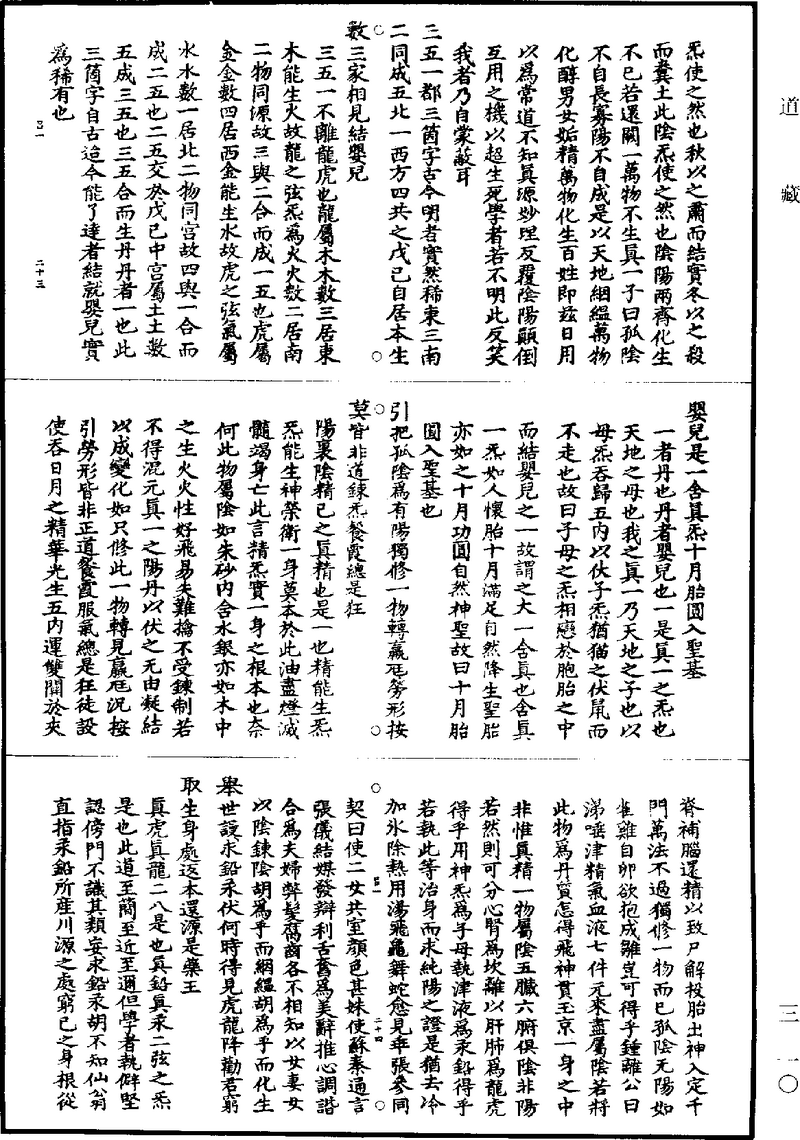 道藏
三一〇
炁使之然也秋以之肅而結實冬以之殺
而糞土此陰炁使之然也陰陽兩齊化生
不已若還闕一萬物不生真一子曰孤陰
不自長寡陽不自成是以天地絪緼萬物
化醇男女姤精萬物化生百姓即兹日用
以爲常道不知真源妙理反覆陰陽顛倒
互用之機以超生死學者若不明此反笑
我者乃自蒙蔽耳
三五一都三箇字古今明者實然稀東三南
二同成五北一西方四共之戊己自居本生
數三家相見結嬰兒
三五一不離龍虎也龍屬木木數三居東
木能生火故龍之弦炁爲火火數二居南
二物同源故三與二合而成一五也虎屬
金金數四居西金能生水故虎之弦氣屬
水水數一居北二物同宫故四與一合而
成二五也二五交於戊己中宫屬土土數
五成三五也三五合而生丹丹者一也此
三箇字自古迨今能了達者結就嬰兒實
爲稀有也
二十三
嬰兒是一含真炁十月胎圓入聖基
一者丹也丹者嬰兒也一是真一之炁也
天地之母也我之真一乃天地之子也以
母炁吞歸五内以伏子炁猶猫之伏鼠而
不走也故曰子母之炁相戀於胞胎之中
而結嬰兒之一故謂之大一含真也含真
一炁如人懷胎十月滿足自然降生聖胎
亦如之十月功圓自然神聖故曰十月胎
圓入聖基也
引把孤陰爲有陽獨修一物轉羸尫勞形按
莫皆非道鍊炁餐霞總是狂
陽裏陰精己之真精也是一也精能生炁
炁能生神榮衛一身莫本於此油盡燈滅
髓竭身亡此言精炁實一身之根本也奈
何此物屬陰如朱砂内含水銀亦如木中
之生火火性好飛易失難擒不受鍊制若
不得混元真一之陽丹以伏之无由凝結
以成變化如只修此一物轉見羸尫況按
引勞形皆非正道餐霞服氣總是狂徒設
使吞日月之精華光生五内運雙關於夾
脊補腦還精以致尸解投胎出神入定千
門萬法不過獨修一物而已孤陰无陽如
雀雞自卵欲抱成雛豈可得乎鍾離公曰
涕唾津精氣血液七件元來盡屬陰若將
此物爲丹質怎得飛神貫玉京一身之中
非惟真精一物屬陰五臟六腑俱陰非陽
若然則可分心腎爲坎離以肝肺爲龍虎
得乎用神炁爲子母執津液爲汞鉛得乎
若執此等治身而求純陽之證是猶去冷
加氷除熱用湯飛龜舞蛇愈見乖張參同
二十四
契曰使二女共室顏色甚姝使蘇秦通言
張儀結媒發辯利舌奮爲美辭推心調諧
合爲夫婦弊髮腐齒各不相知以女妻女
以陰鍊陰胡爲乎而絪緼胡爲乎而化生
舉世謾求鉛汞伏何時得見虎龍降勸君窮
取生身處返本還源是藥王
真虎真龍二八是也真鉛真汞二弦之炁
是也此道至簡至近至邇但學者執僻堅
認傍門不識其類妄求鉛汞胡不知仙翁
直指汞鉛所産川源之處窮己之身根從